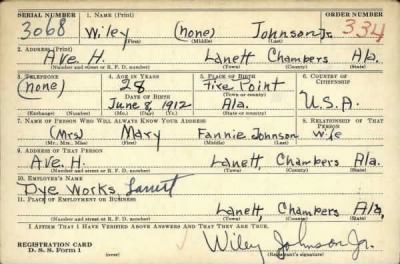 SERIAL NUMBER 1. NAME (Print) ORDER NUMBER
3068 Wiley (none) Johnson Jr. 334
(First) (Middle) (Last)
2. ADDRESS (Print)
Ave. H. Lanett Chambers Ala.
(Number and street or R. F. D. number) (Town) (County) (State)
3. TELEPHONE 4. AGE IN YEARS 5. PLACE OF BIRTH 6. COUNTRY OF CITIZENSHIP
(none) 28 Five Point
DATE OF BIRTH (Town or county)
June 8, 1912 Ala. U.S.A.
(Exchange) (Number) (Mo.) (Day) (Yr.) (State or country)
7. NAME OF PERSON WHO WILL ALWAYS KNOW YOUR ADDRESS 8. RELATIONSHIP OF THAT PERSON
(Mrs) Mary Fannie Johnson wife
(Mr., Mrs., Miss) (First) (Middle) (Last)
9. ADDRESS OF THAT PERSON
Ave. H. Lanett, Chambers Ala.
(Number and street or R. F. D. number) (Town) (County) (State)
10. EMPLOYER'S NAME
Dye Works Lanett
11. PLACE OF EMPLOYMENT OR BUSINESS
Lanett, Chambers Ala,
(Number and street or R. F. D. number) (Town) (County) (State)
I AFFIRM THAT I HAVE VERIFIED ABOVE ANSWERS AND THAT THEY ARE TRUE.
REGISTRATION CARD
D. S. S. Form 1
(over)
Wiley Johnson Jr.
(Registrant's signature)